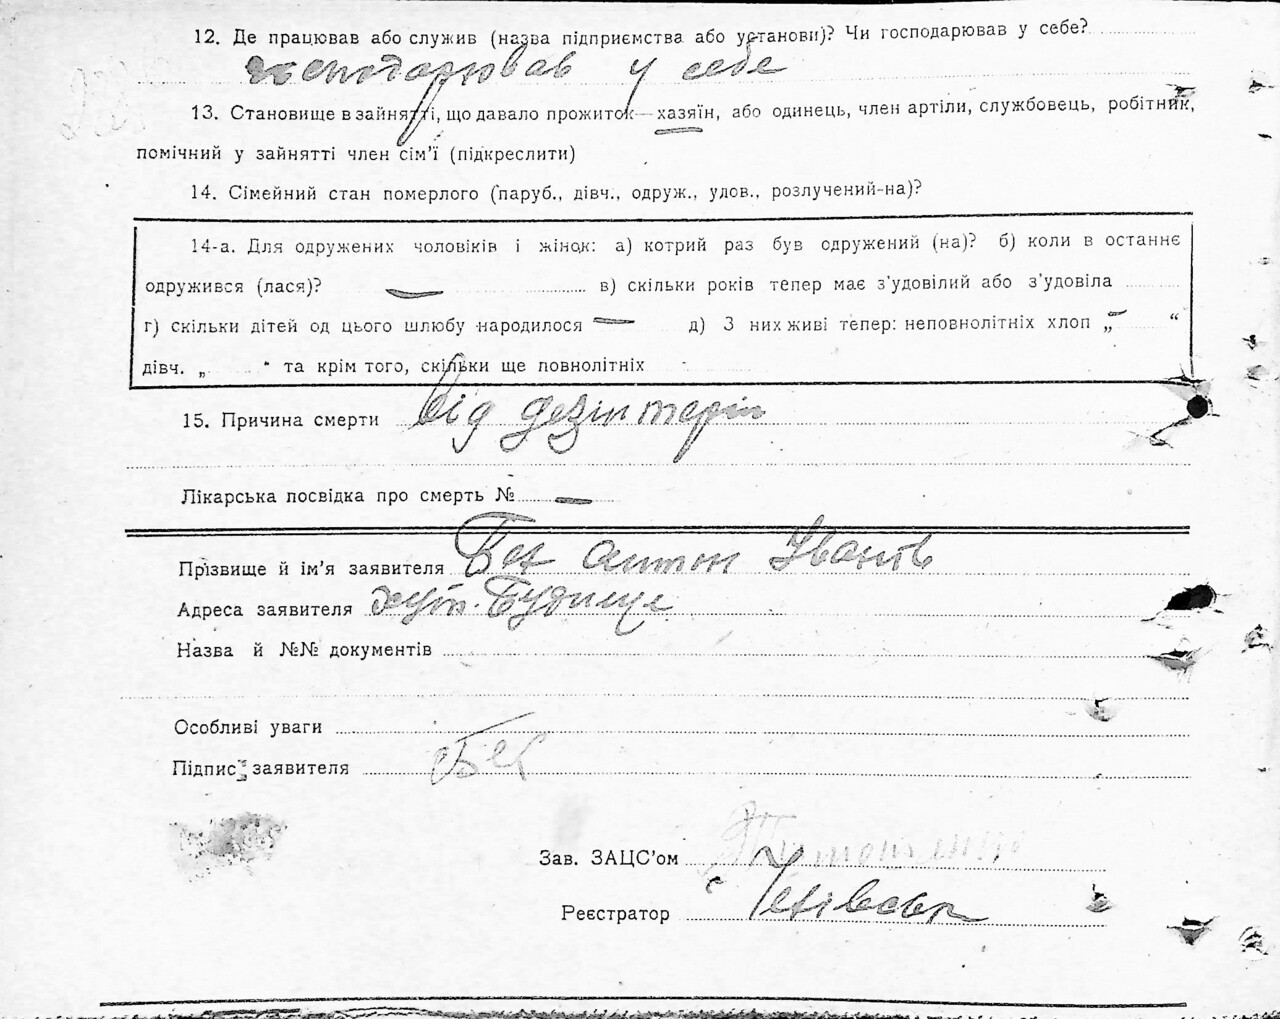 12. Де працював або служив (назва підприємства або установи)? Чи господарював у себе?
господарював у себе
13. Становище в зайнятті, що давало прожиток—хазяїн, або одинець, член артіли, службовець, робітник,
помічний у зайнятті член сім'ї (підкреслити)
14. Сімейний стан померлого (паруб., дівч., одруж., удов., розлучений-на)?
14-а. Для одружених чоловіків і жінок: а) котрий раз був одружений (на)? б) коли в останнє
одружився (лася)? — в) скільки років тепер має з'удовілий або з'удовіла
г) скільки дітей од цього шлюбу народилося — д) З них живі тепер: неповнолітніх хлоп „ — “
дівч. „ “ та крім того, скільки ще повнолітніх
15. Причина смерти від дезінтерії
Лікарська посвідка про смерть № —
Прізвище й ім'я заявителя Бех Антон Іванів
Адреса заявителя хут. Будище
Назва й №№ документів
Особливі уваги
Підпис заявителя Бех
Зав. ЗАЦС'ом
Реєстратор